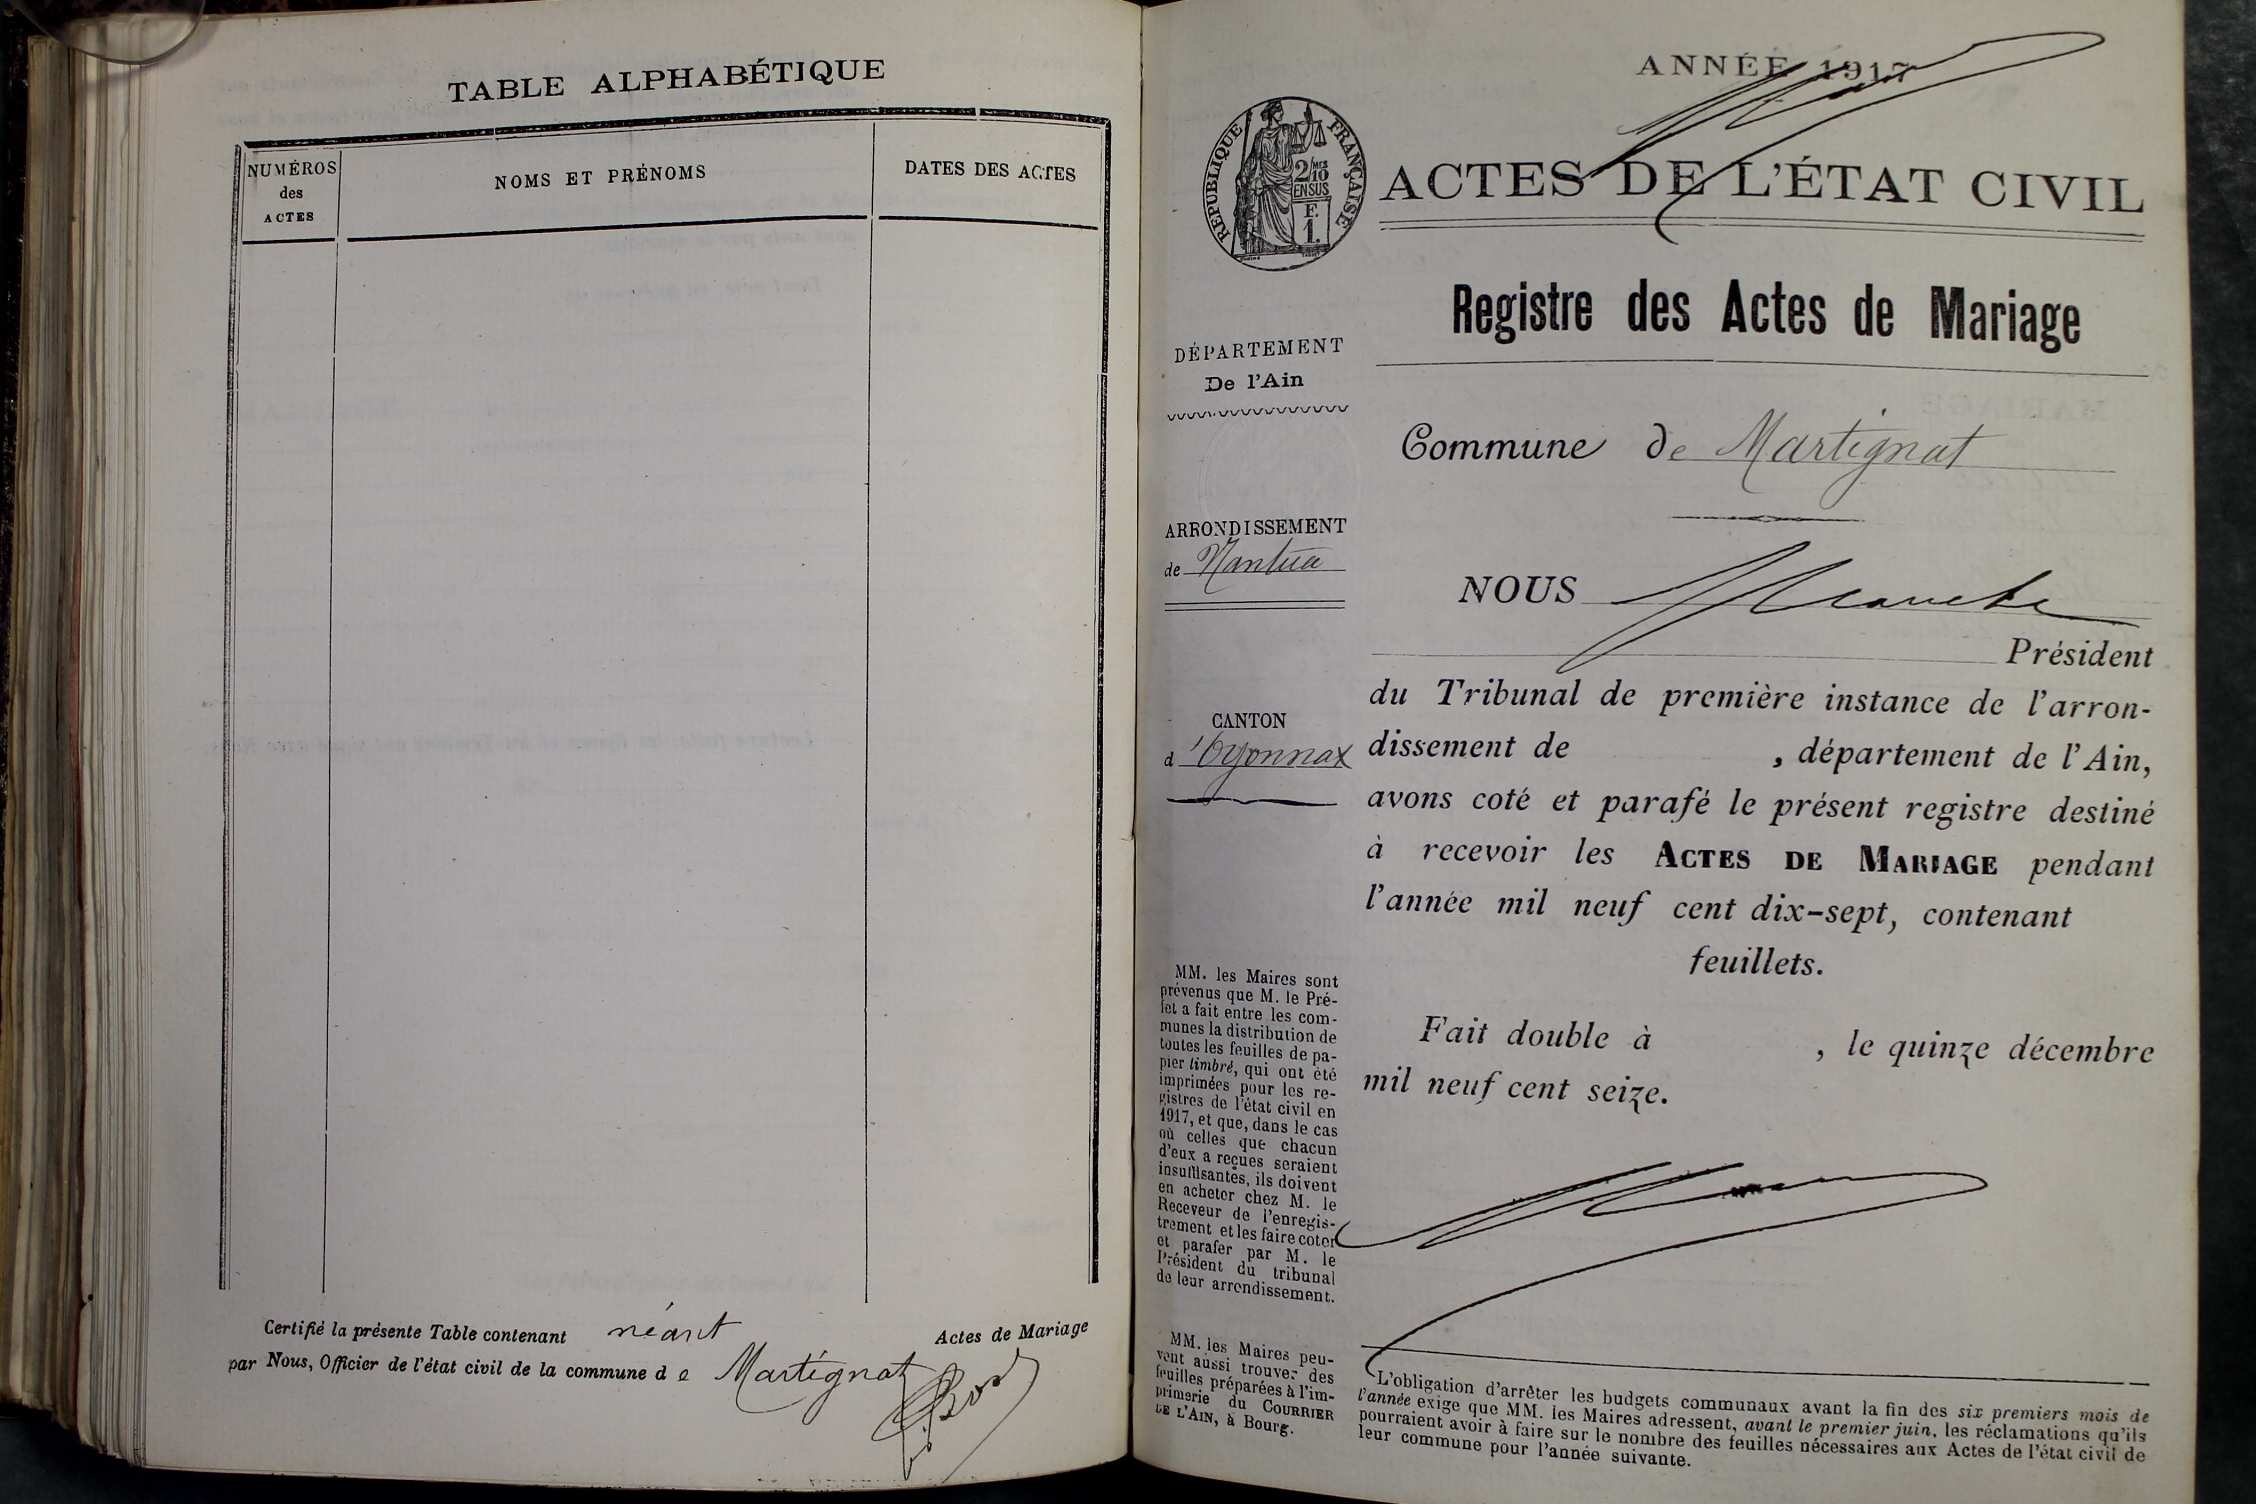 TABLE ALPHABÉTIQUE
NUMÉROS
des
ACTES
NOMS ET PRÉNOMS
DATES DES ACTES
Certifié la présente Table contenant néant Actes de Mariage
par Nous, Officier de l'état civil de la commune de Martignat
ANNÉE 1917
RÉPUBLIQUE FRANÇAISE
2/10
MES
EN SUS
F.
1.
ACTES DE L'ÉTAT CIVIL
Registre des Actes de Mariage
DÉPARTEMENT
De l'Ain
Commune de Martignat
ARRONDISSEMENT
de Nantua
NOUS
Président
CANTON
d'Oyonnax
du Tribunal de première instance de l'arron-
dissement de , département de l'Ain,
avons coté et parafé le présent registre destiné
à recevoir les ACTES DE MARIAGE pendant
l'année mil neuf cent dix-sept, contenant
feuillets.
Fait double à , le quinze décembre
mil neuf cent seize.
MM. les Maires sont
prévenus que M. le Pré-
fet a fait entre les com-
munes la distribution de
toutes les feuilles de pa-
pier timbré, qui ont été
imprimées pour les re-
gistres de l'état civil en
1917, et que, dans le cas
où celles que chacun
d'eux a reçues seraient
insuffisantes, ils doivent
en acheter chez M. le
Receveur de l'enregis-
trement et les faire coter
et parafer par M. le
Président du tribunal
de leur arrondissement.
MM. les Maires peu-
vent aussi trouver des
feuilles préparées à l'im-
primerie du COURRIER
DE L'AIN, à Bourg.
L'obligation d'arrêter les budgets communaux avant la fin des six premiers mois de
l'année exige que MM. les Maires adressent, avant le premier juin, les réclamations qu'ils
pourraient avoir à faire sur le nombre des feuilles nécessaires aux Actes de l'état civil de
leur commune pour l'année suivante.